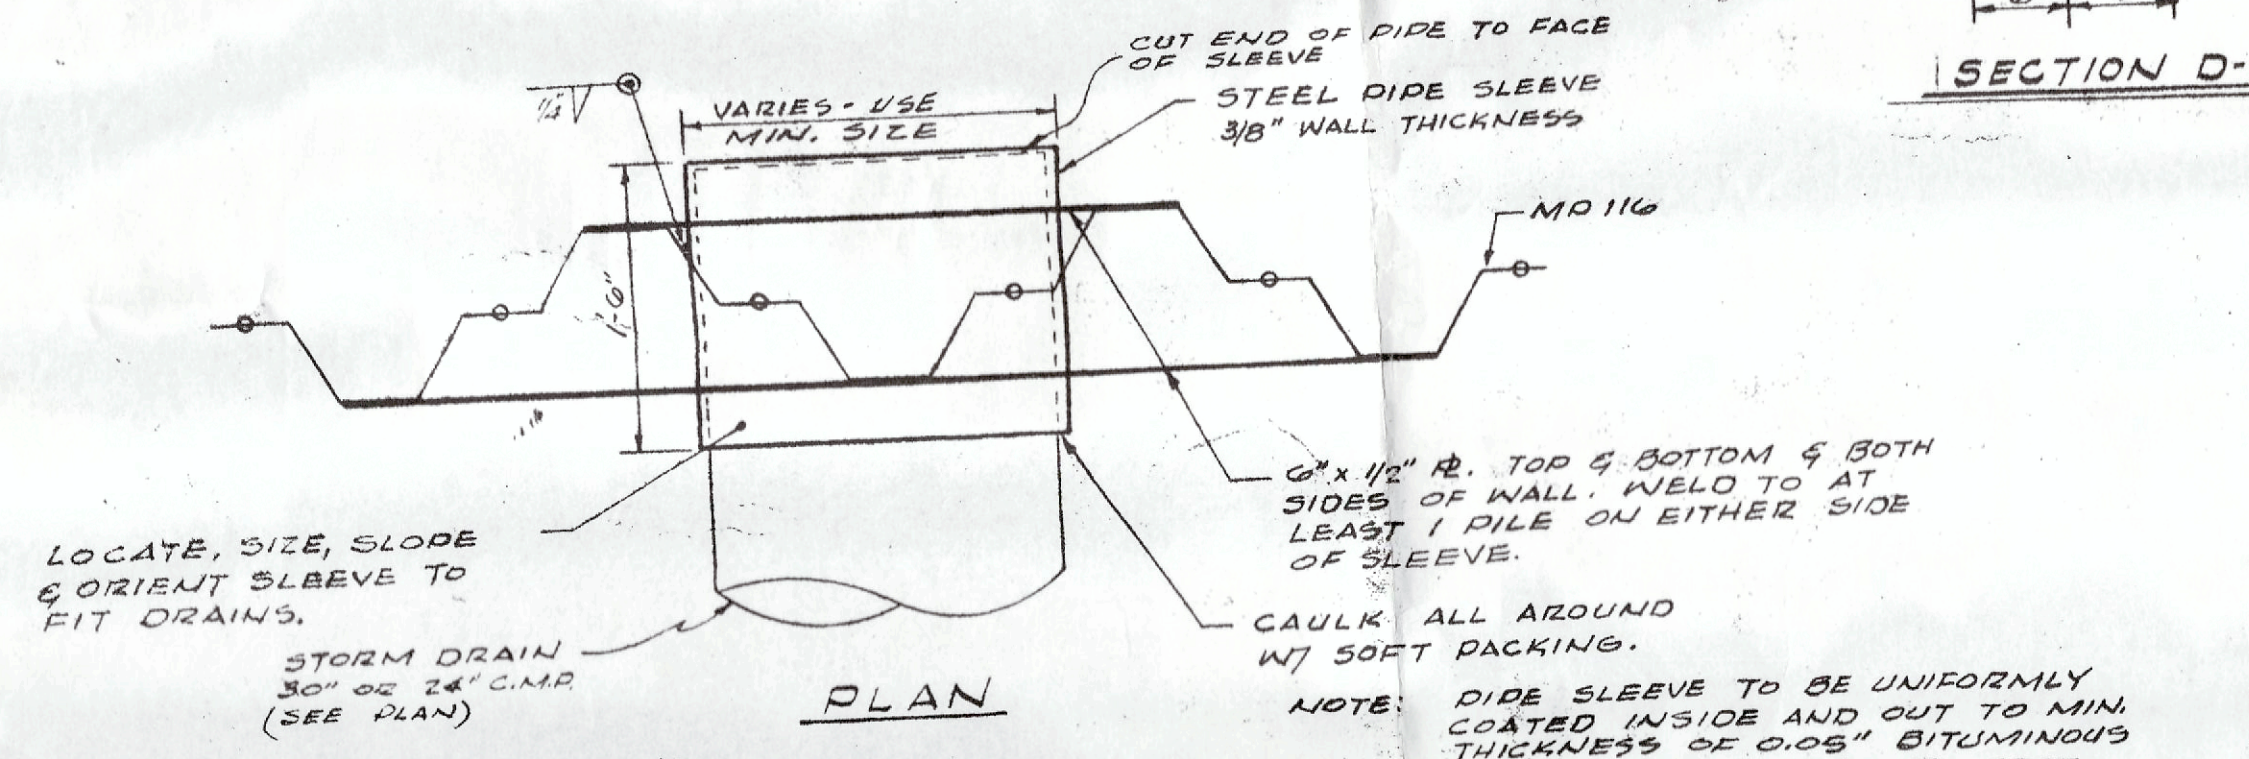 CUT END OF PIPE TO FACE
OF SLEEVE
SECTION D-
STEEL PIPE SLEEVE
3/8" WALL THICKNESS
1/4
VARIES - USE
MIN. SIZE
MP 116
1'-6"
6" x 1/2" PL. TOP & BOTTOM & BOTH
SIDES OF WALL. WELD TO AT
LEAST 1 PILE ON EITHER SIDE
OF SLEEVE.
LOCATE, SIZE, SLOPE
& ORIENT SLEEVE TO
FIT DRAINS.
CAULK ALL AROUND
W/ SOFT PACKING.
STORM DRAIN
30" OR 24" C.M.P.
(SEE PLAN)
PLAN
NOTE: PIPE SLEEVE TO BE UNIFORMLY
COATED INSIDE AND OUT TO MIN.
THICKNESS OF 0.05" BITUMINOUS